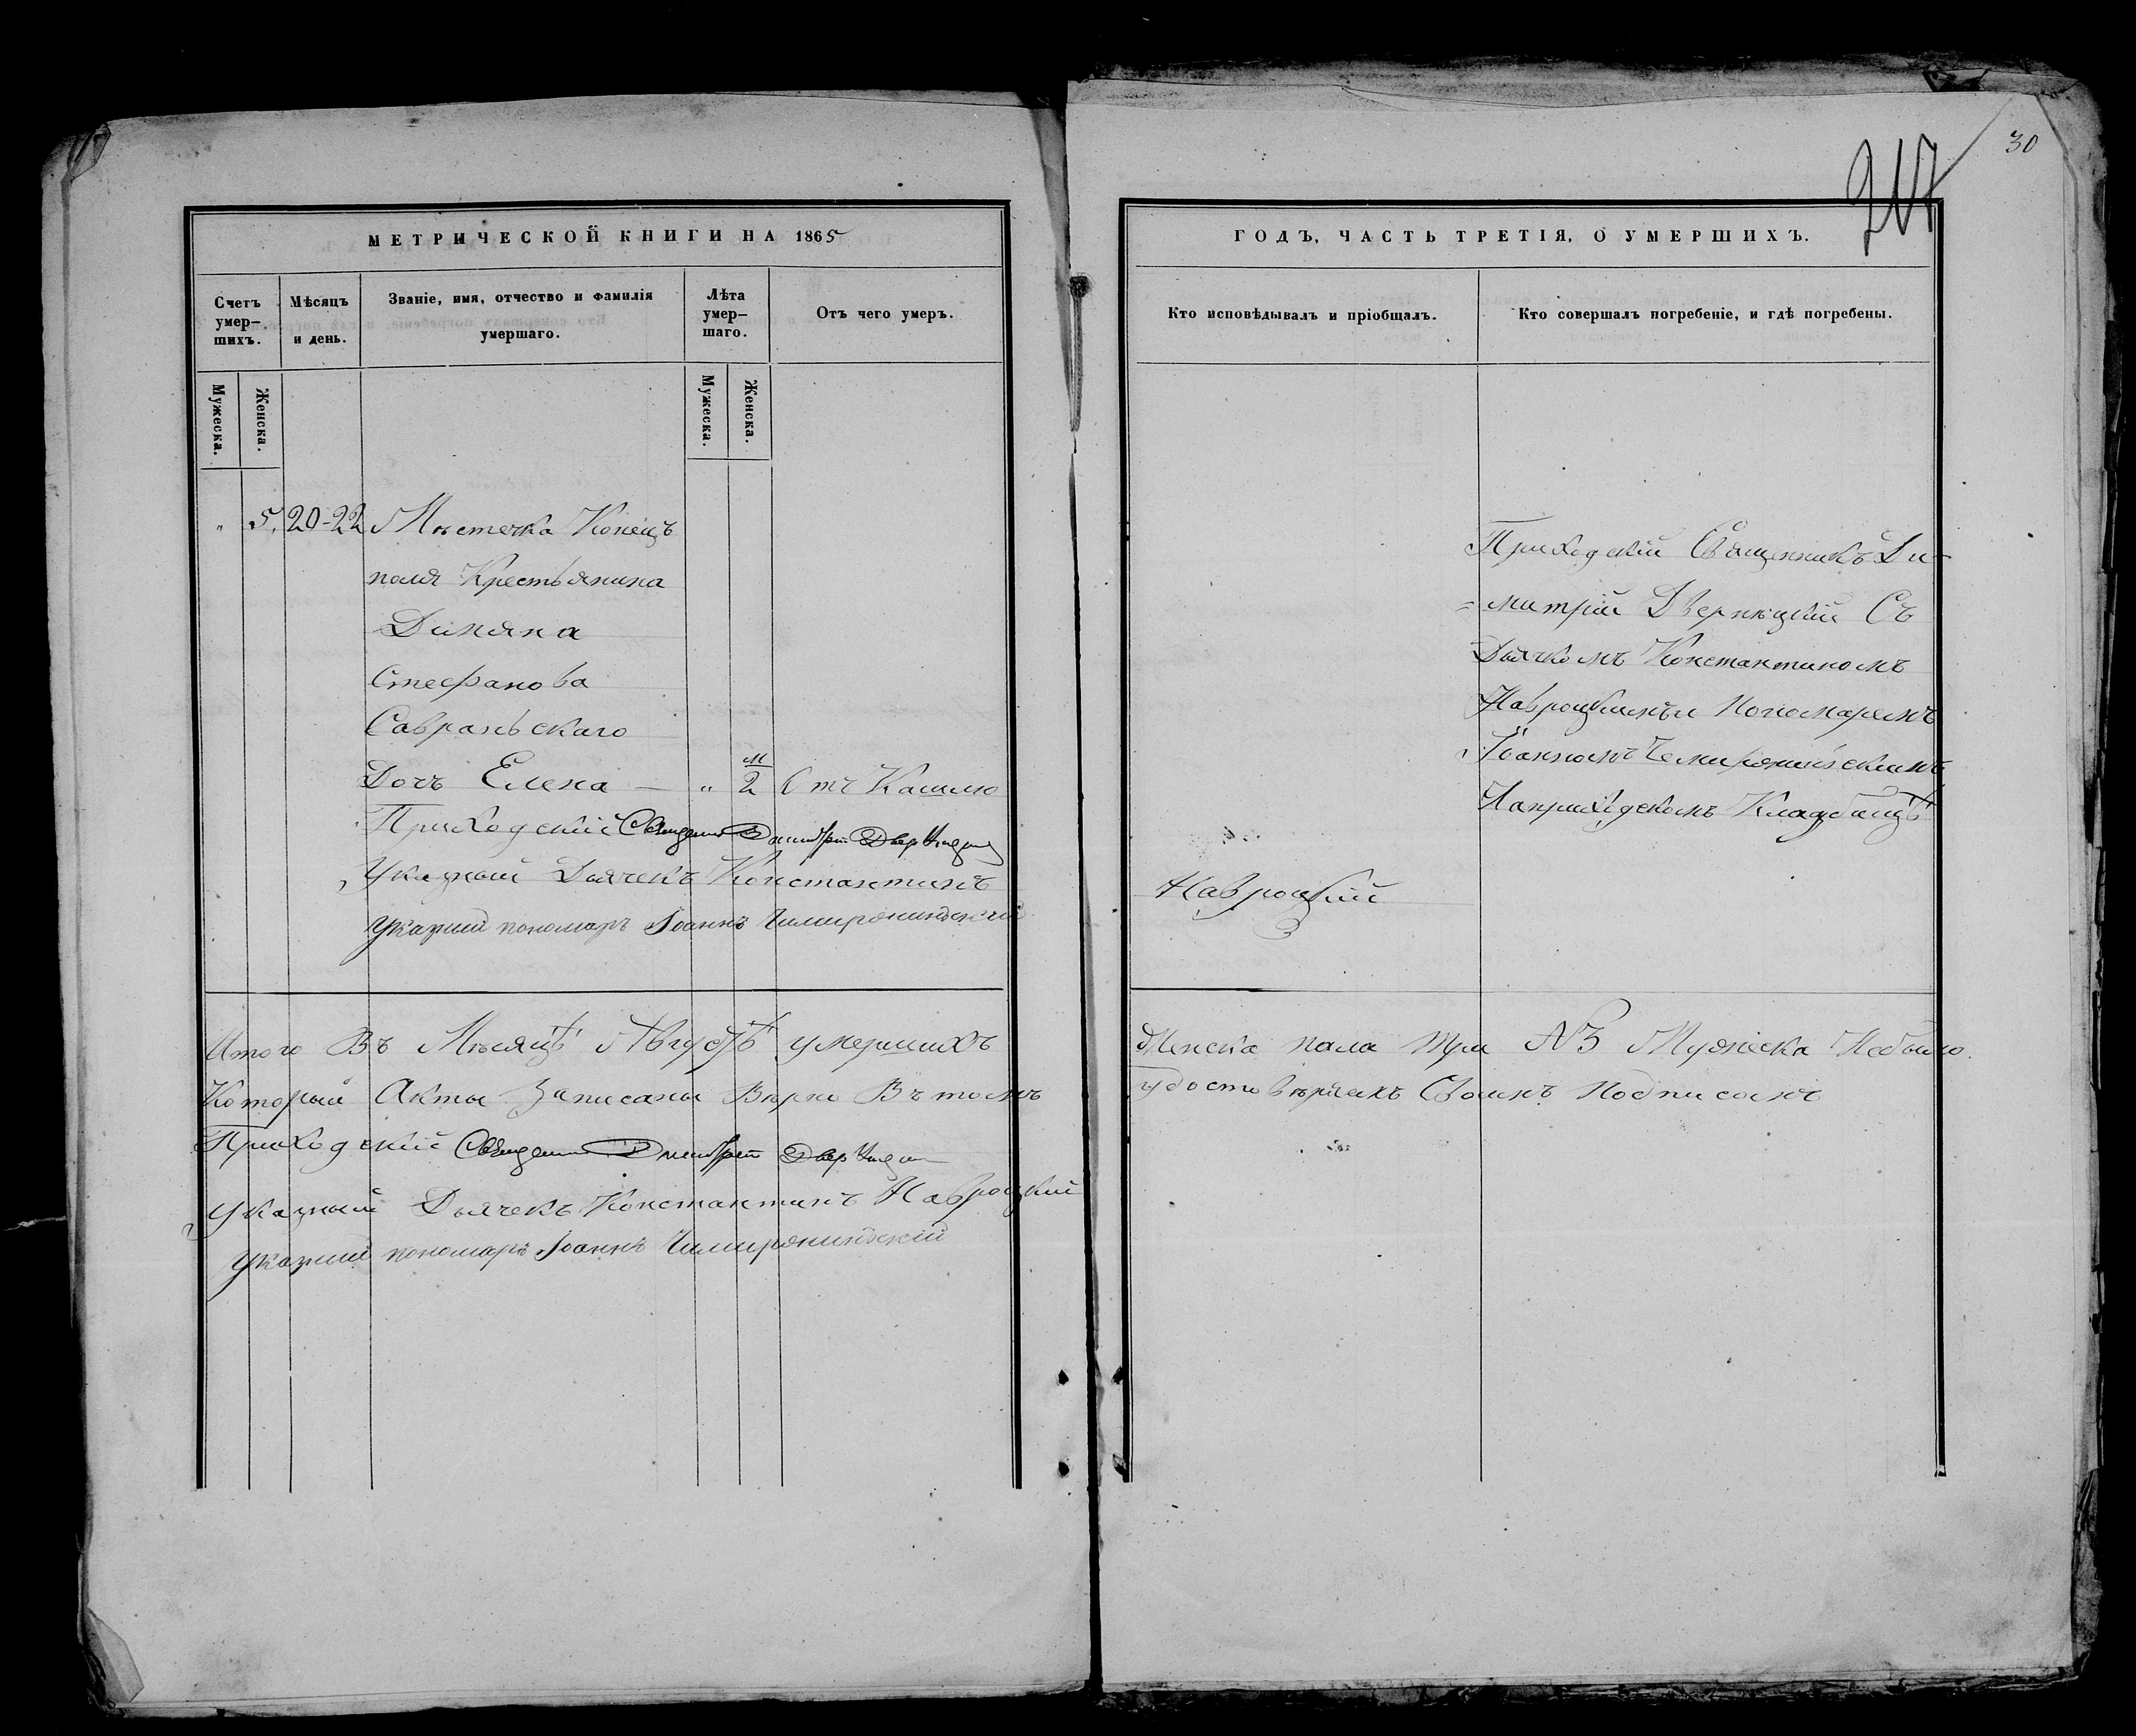 МЕТРИЧЕСКОЙ КНИГИ НА 1865
Счетъ умер-шихъ.
Мѣсяцъ и день.
Званіе, имя, отчество и фамилія умершаго.
Лѣта умер-шаго.
Отъ чего умеръ.
Мужеска.
Женска.
Мужеска.
Женска.
" 5. 20-22 Мѣстечка Конецъ
поля Крестьянина
Димяна
Стефанова
Савраньскаго
м
Дочъ Елена — " 2 Отъ Кашлю
Приходскій Священникъ Димитрій
Указный Дьячекъ Константинъ
Указный пономаръ Іоаннъ
Итого Въ Мѣсяцѣ Августѣ умершихъ
Который Акты Записаны Вѣрно Въ томъ
Приходскій Священникъ Димитрій
Указный Дьячекъ Константинъ Навроцкий
Указный пономаръ Іоаннъ
30
217
ГОДЪ, ЧАСТЬ ТРЕТІЯ, О УМЕРШИХЪ.
Кто исповѣдывалъ и пріобщалъ.
Кто совершалъ погребеніе, и гдѣ погребены.
Приходскій Священникъ Ди-
=митрій Дверницкій Съ
Дьячкомъ Константиномъ
Навроцкимъ и Пономаремъ
Іоанномъ
На приходскомъ Кладбищѣ
Навроцкій
Женска пола три №3 Мужеска Небыло.
удостовѣряемъ Своимъ Подписомъ